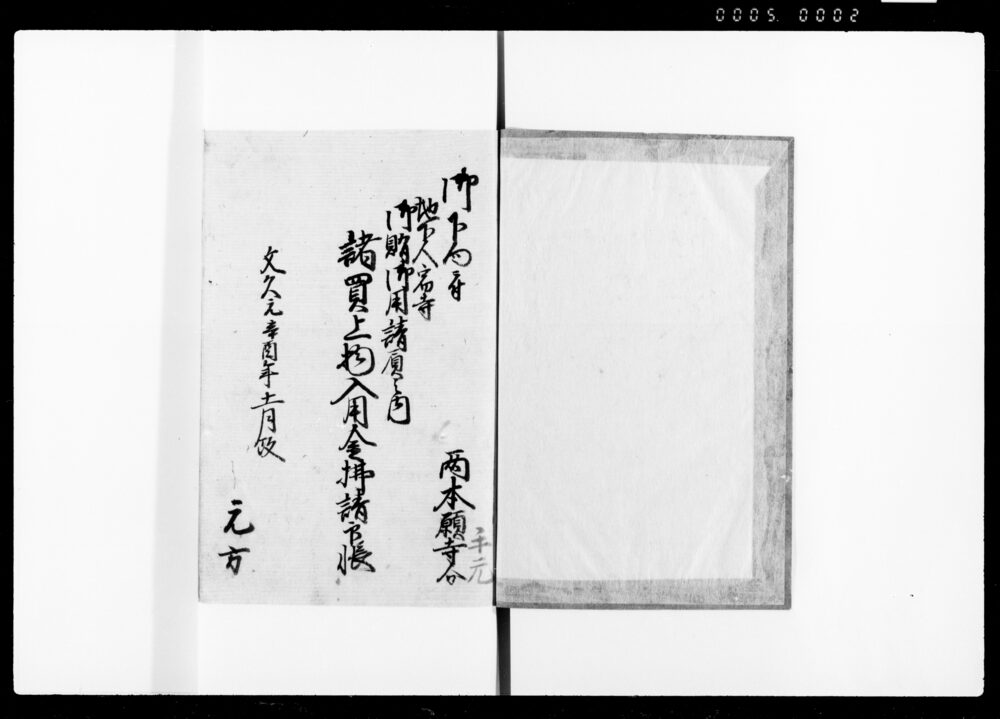 0005. 0002
御下向ニ付
両本願寺分
手元
地下人宿寺
御賄御用請負之内
諸買上物入用金払請取帳
文久元辛酉年十一月改
元方